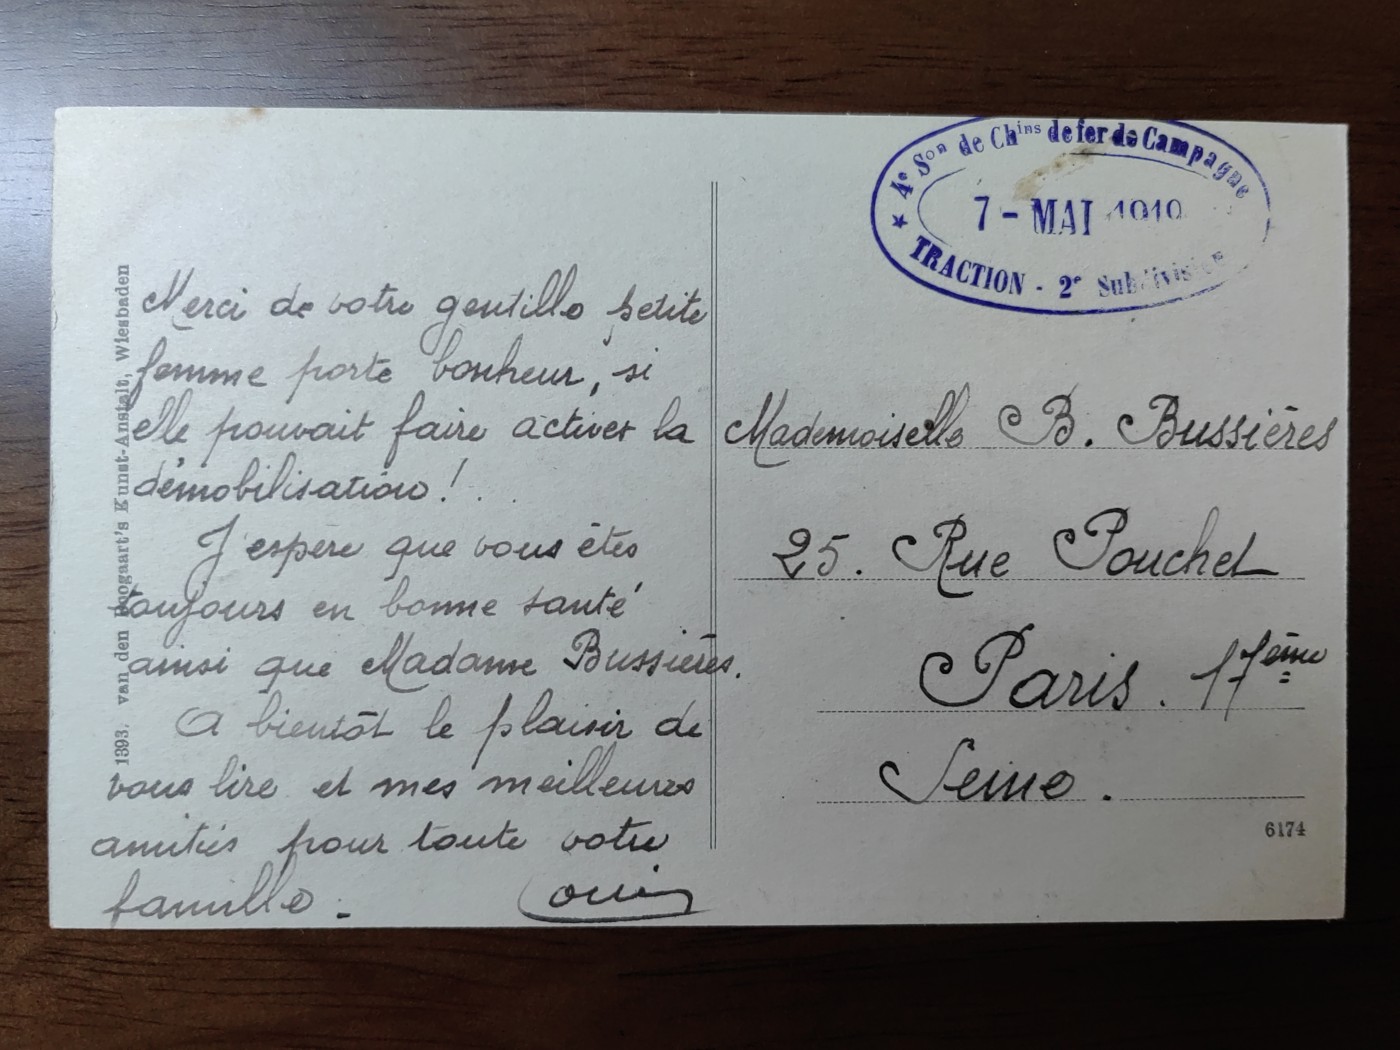 Merci de votre gentille petite
femme porte bonheur, si
elle pouvait faire activer la
démobilisation ! . .
J'espere que vous êtes
toujours en bonne santé
ainsi que Madame Bussières.
A bientôt le plaisir de
vous lire et mes meilleures
amitiés pour toute votre
famille.
1393. van den Hoogaart's Kunst-Anstalt, Wiesbaden
★ 4e Son de Chins de fer de Campagne
7 - MAI 1919
TRACTION - 2e Subdivision
Mademoiselle B. Bussières
25. Rue Pouchet
Paris. 17ème
Seine.
6174